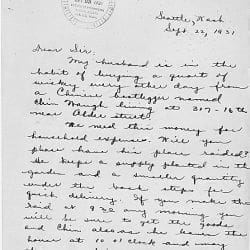 Seattle, Wash
Sept. 22, 1931
Dear Sir.
My husband is in the
habit of buying a quart of
wiskey every other day from
a Chinese bootlegger named
Chin Waugh living at 317-16th
near Alder street.
We need this money for
household expenses. Will you
please have his place raided?
He keeps a supply planted in the
garden and a smaller quantity
under the back steps for
quick delivery. If you make the
raid at 9:30 any morning you
will be sure to get the goods
and Chin also as he leaves the
house at 10 o'clock and may